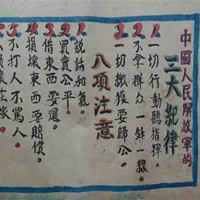 中國人民解放軍的
三大紀律
1 一切行動聽指揮。
2 不拿群众一針一線。
3 一切繳獲要歸公。
八項注意
1 說話和氣。
2 買賣公平。
3 借東西要還。
4 損壞東西要賠償。
5 不打人不罵人。